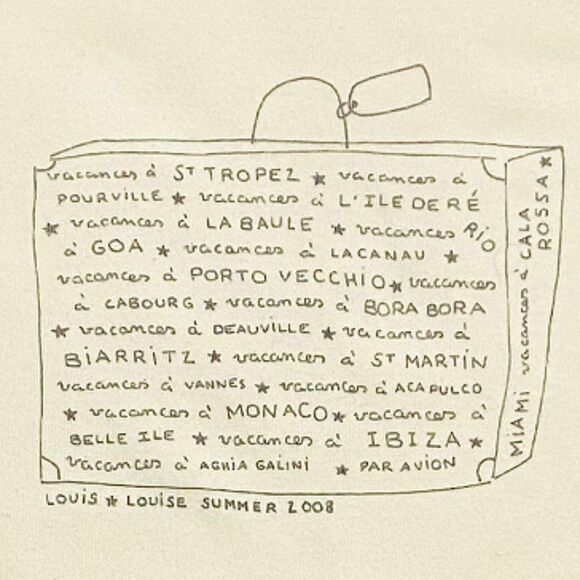 vacances à ST TROPEZ ★ vacances à
POURVILLE ★ vacances à L'ILE DE RÉ
★ vacances à LA BAULE ★ vacances RIO
à GOA ★ vacances à LACANAU ★
vacances à PORTO VECCHIO ★ vacances
à CABOURG ★ vacances à BORA BORA
★ vacances à DEAUVILLE ★ vacances à
BIARRITZ ★ vacances à ST MARTIN
vacances à VANNES ★ vacances à ACAPULCO
★ vacances à MONACO ★ vacances à
BELLE ILE ★ vacances à IBIZA ★
vacances à AGHIA GALINI ★ PAR AVION
MIAMI vacances à CALA
ROSSA ★
LOUIS ★ LOUISE SUMMER 2008